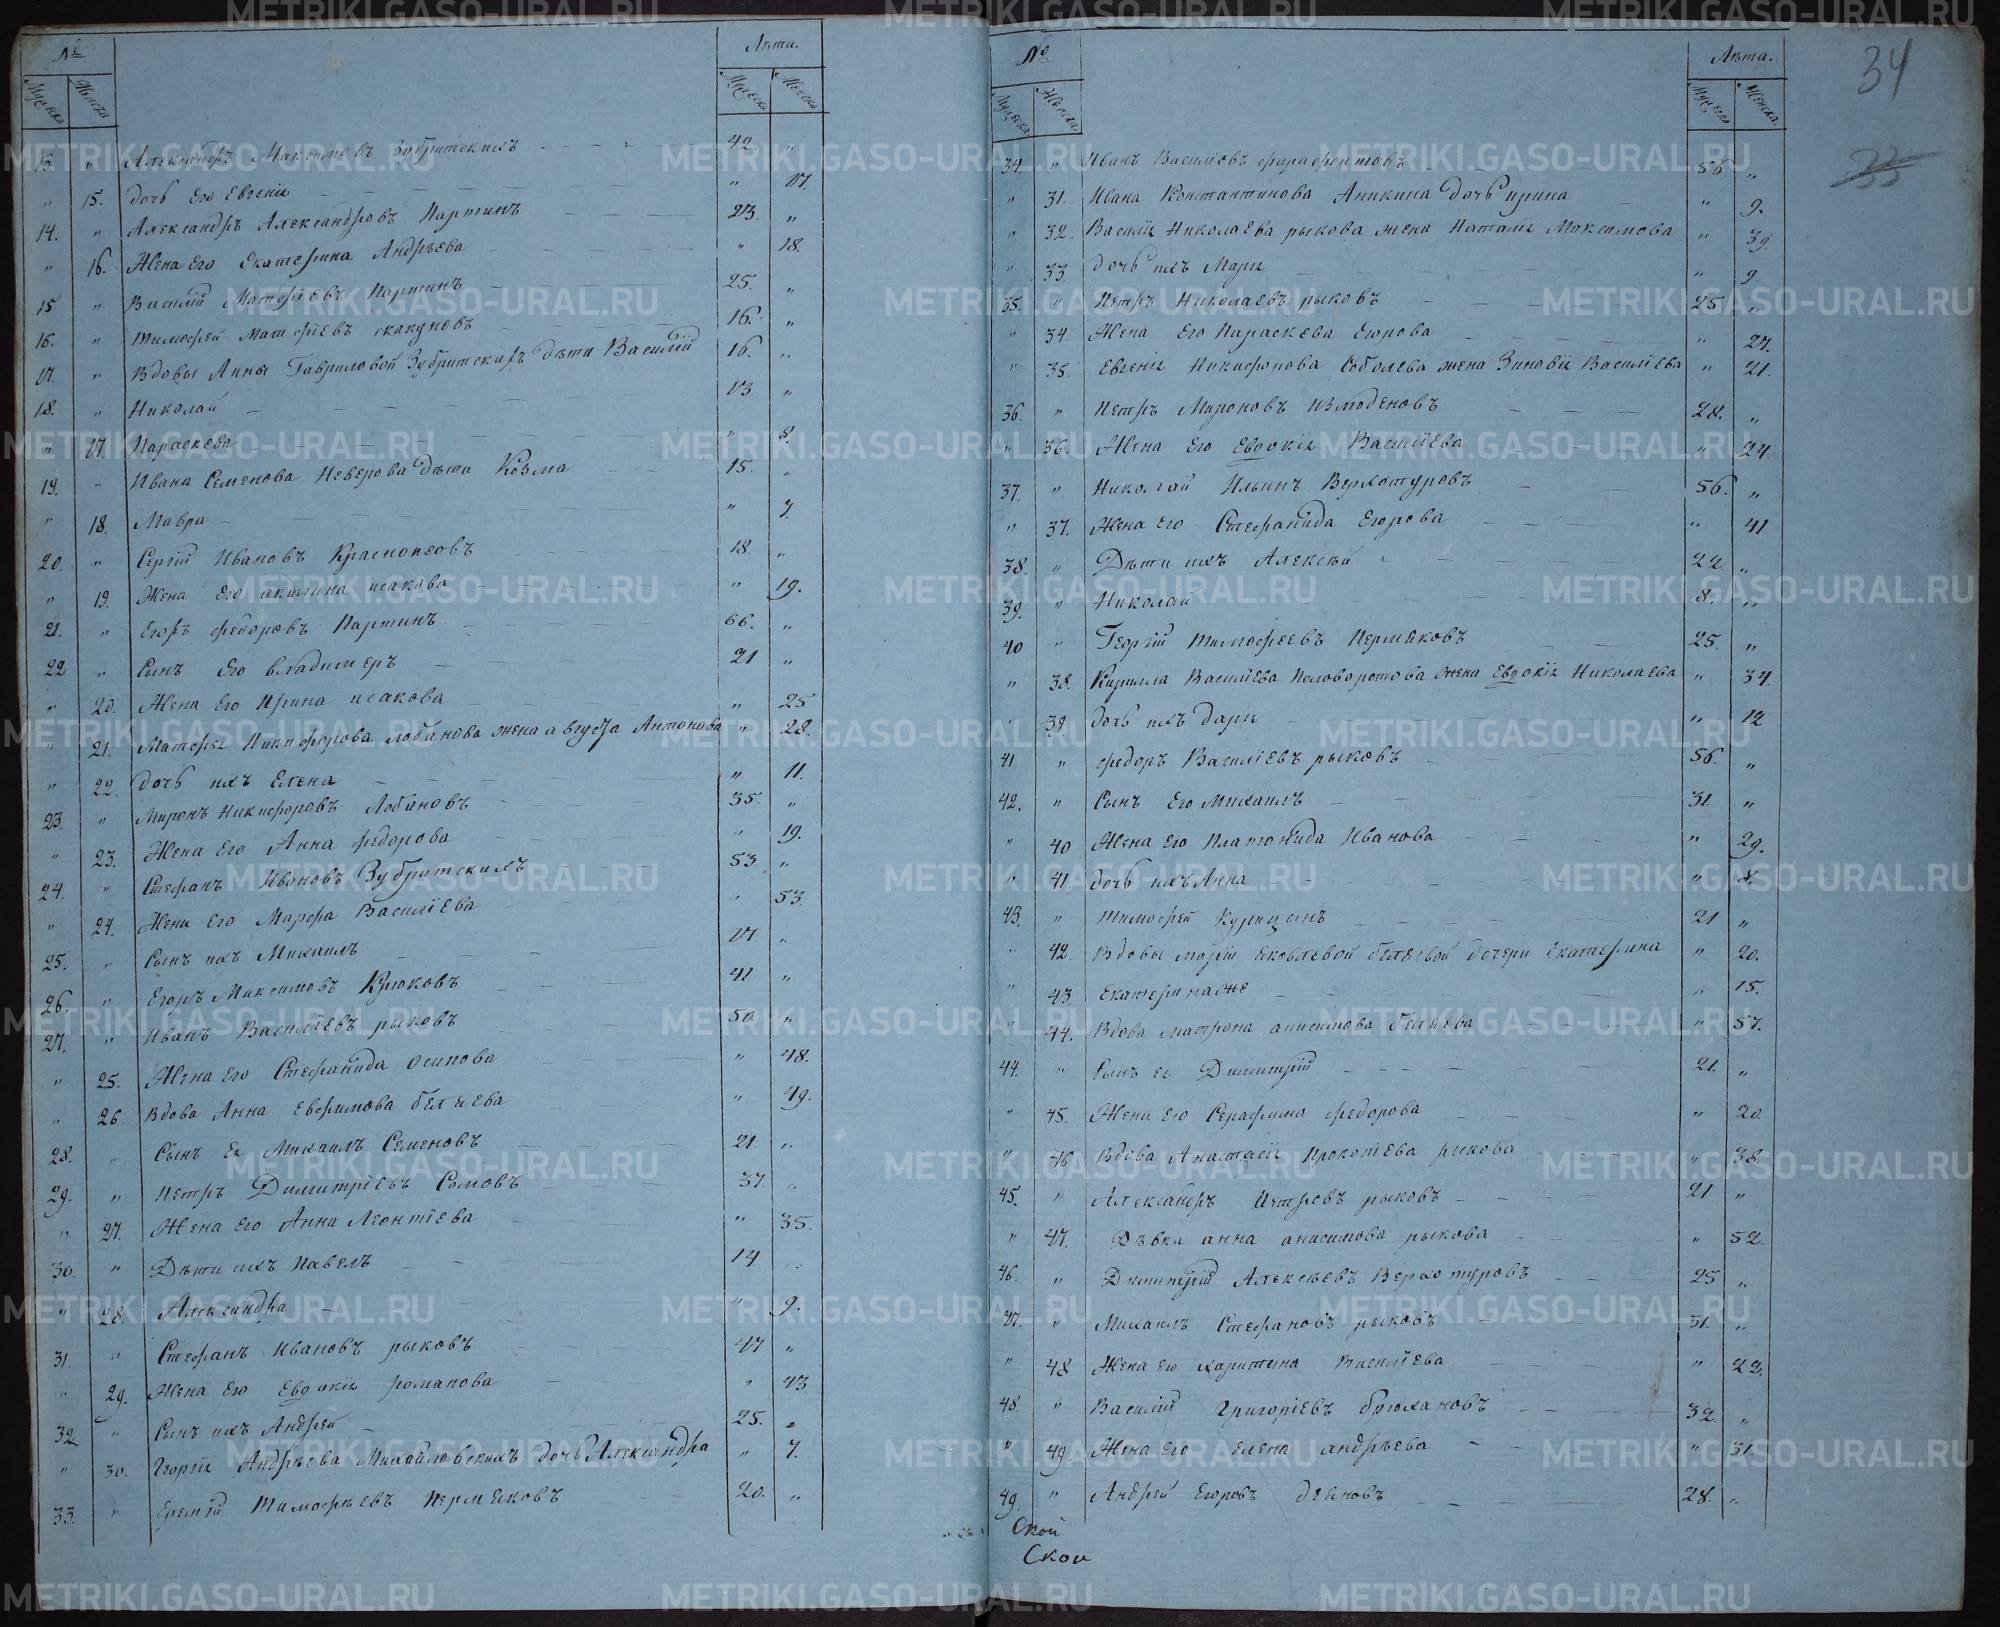 №
Лѣта.
Мужеска
Женска
Мужеска
Женска
13. " Александръ Максимовъ Зубритскихъ 42 "
" 15. дочь Его Евгенія " 17.
14. " Александръ Александровъ Партинъ 23. "
" 16. Жена Его Екатерина Андрѣева " 18.
15 " Василій Матфіевъ Партинъ 25. "
16. " Тимофей Матфіевъ скакуновъ 16. "
17. " Вдовы Анны Гавриловой Зубритскихъ дѣти Василій 16. "
18. " Николай 13 "
" 17 Параскева " 8.
19. " Ивана Семенова Неверова дѣти Козма 15. "
" 18. Мавра " 7.
20. " Сергій Ивановъ Красноперовъ 18. "
" 19. Жена Его исакова " 19.
21. " Егоръ федоровъ Партинъ 66. "
22 " Сынъ Его владимеръ 21 "
" 20. Жена Его Ирина исакова " 25
" 21. Матфея Никифорова лобанова жена августа Антонова " 28.
" 22. дочь ихъ Елена " 11.
23. " Миронъ Никифоровъ Лобановъ 35. "
" 23. Жена Его Анна федорова " 19.
24. " Стефанъ Ивановъ Зубритскихъ 53 "
" 24. Жена Его Марфа Василіева " 53.
25. " Сынъ ихъ Михаилъ 17. "
26. " Егоръ Максимовъ Крюковъ 41 "
27. " Иванъ Василіевъ рыковъ 50. "
" 25. Жена Его Стефанида осипова " 48.
" 26. Вдова Анна Евфимова беляева " 49.
28. " Сынъ Ея Михаилъ Семеновъ 21 "
29. " Петръ Димитріевъ Сомовъ 37 "
" 27. Жена Его Анна Леонтіева " 35.
30. " Дѣти ихъ Павелъ 14 "
" 28. Александра " 9.
31. " Стефанъ Ивановъ рыковъ 47 "
" 29. Жена Его Евдокія романова " 43
32 " Сынъ ихъ Андрей 25. "
" 30. Георгія Андрѣева Михайловскихъ дочь Александра " 7.
33. " Еремій Тимофѣевъ Пермяковъ 20. "
34
33
№
Лѣта.
Мужеска
Женска.
Мужеска
Женска.
34. " Иванъ Василіовъ фарафонтовъ 56 "
" 31. Ивана Константинова Аникина дочь ирина " 9.
" 32. Василія Николаева рыкова жена Наталія Максимова " 39.
" 33. дочь ихъ Марія " 9.
35. " Петръ Николаевъ рыковъ 25 "
" 34. Жена Его Параскева Егорова " 27.
" 35. Евгенія Никифорова Соболева жена Зиновія Василіева " 21.
36. " Петръ Мироновъ измоденовъ 28. "
" 36. Жена Его Евдокія Василіева " 24
37. " Николай Ильинъ Верхотуровъ 56. "
" 37. Жена Его Стефанида Егорова " 41
38. " Дѣти ихъ Алексѣй 22 "
39. " Николай 8. "
40 " Георгій Тимофеевъ Пермяковъ 25. "
" 38. Кирилла Василіева Половоротова жена Евдокія Николаева " 34.
" 39. дочь ихъ дарія " 12
41 " федоръ Василіевъ рыковъ 56. "
42. " Сынъ Его Михаилъ 31 "
" 40 Жена Его Платонида Иванова " 29.
" 41 дочь ихъ Анна " 8.
43. " Тимофей Курицынъ 21 "
" 42. Вдовы маріи Яковлевой белевой дочери Екатерина " 20.
" 43. Екатерина же " 15.
" 44. Вдова матрона анисимова беляева " 57.
44. " Сынъ ея Димитрій 21. "
" 45. Жена Его Серафима федорова " 20.
" 46 Вдова Анастасія Прокопіева рыкова " 38.
45. " Александръ Петровъ рыковъ 21 "
" 47. Дѣвка анна анисимова рыкова " 52.
46. " Димитрій Алексѣевъ Верхотуровъ 25 "
47. " Михаилъ Стефановъ рыковъ 31. "
" 48 Жена его харитина Василіева " 22.
48. " Василій Григоріевъ брюхановъ 32 "
" 49 Жена Его елена андрѣева " 31.
49. " Андрей Егоровъ деяновъ 28. "
Ской
Скои